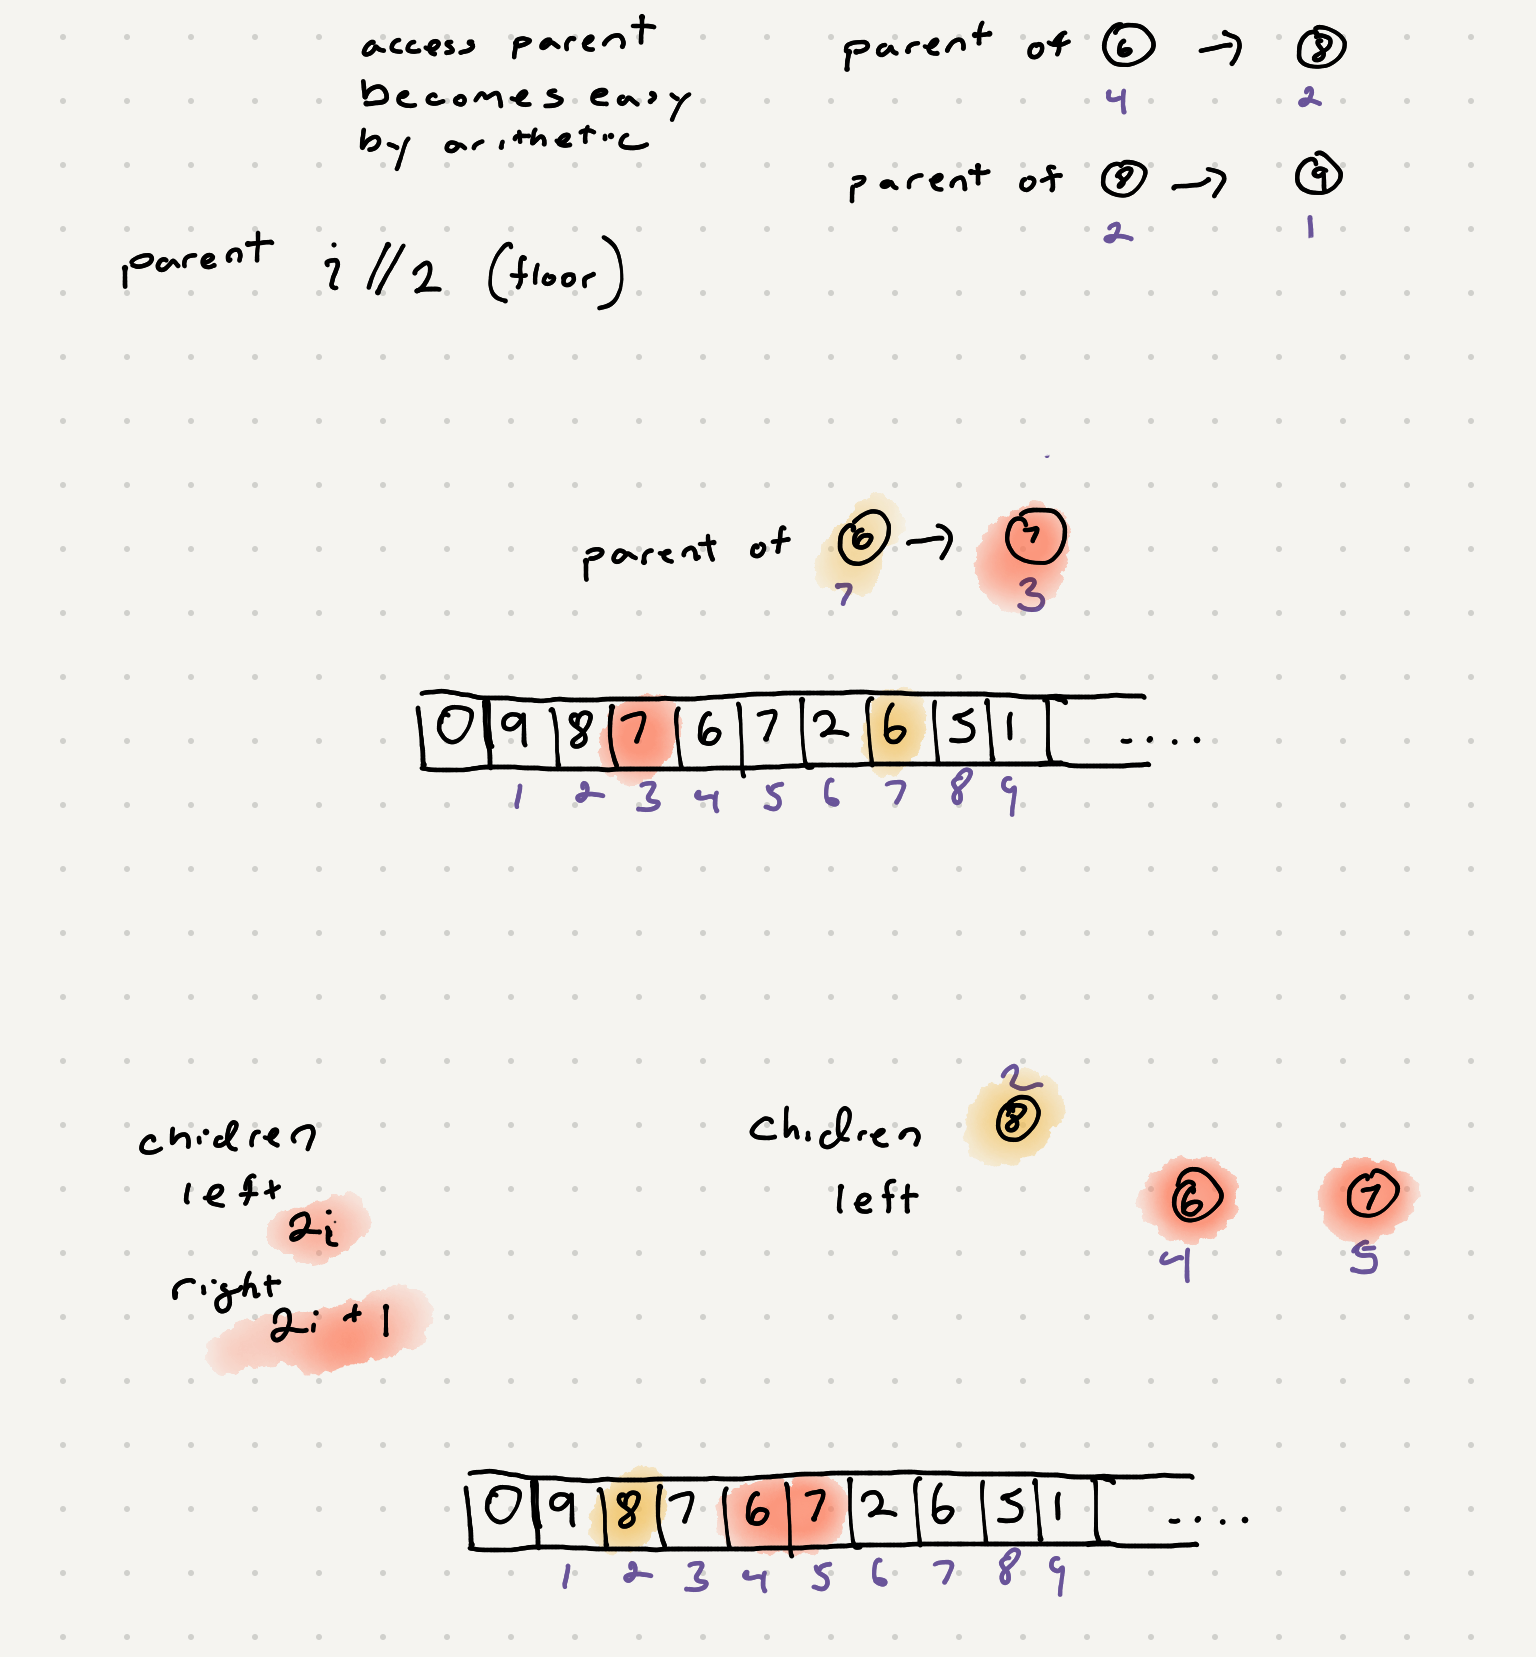 access parent
becomes easy
by arithetic
parent of 6 → 8
4 2
parent of 8 → 9
2 1
parent i//2 (floor)
parent of 6 → 7
7 3
0 9 8 7 6 7 2 6 5 1 ....
1 2 3 4 5 6 7 8 9
children
left
2i
right
2i+1
2
children 8
left 6 7
4 5
0 9 8 7 6 7 2 6 5 1 ....
1 2 3 4 5 6 7 8 9